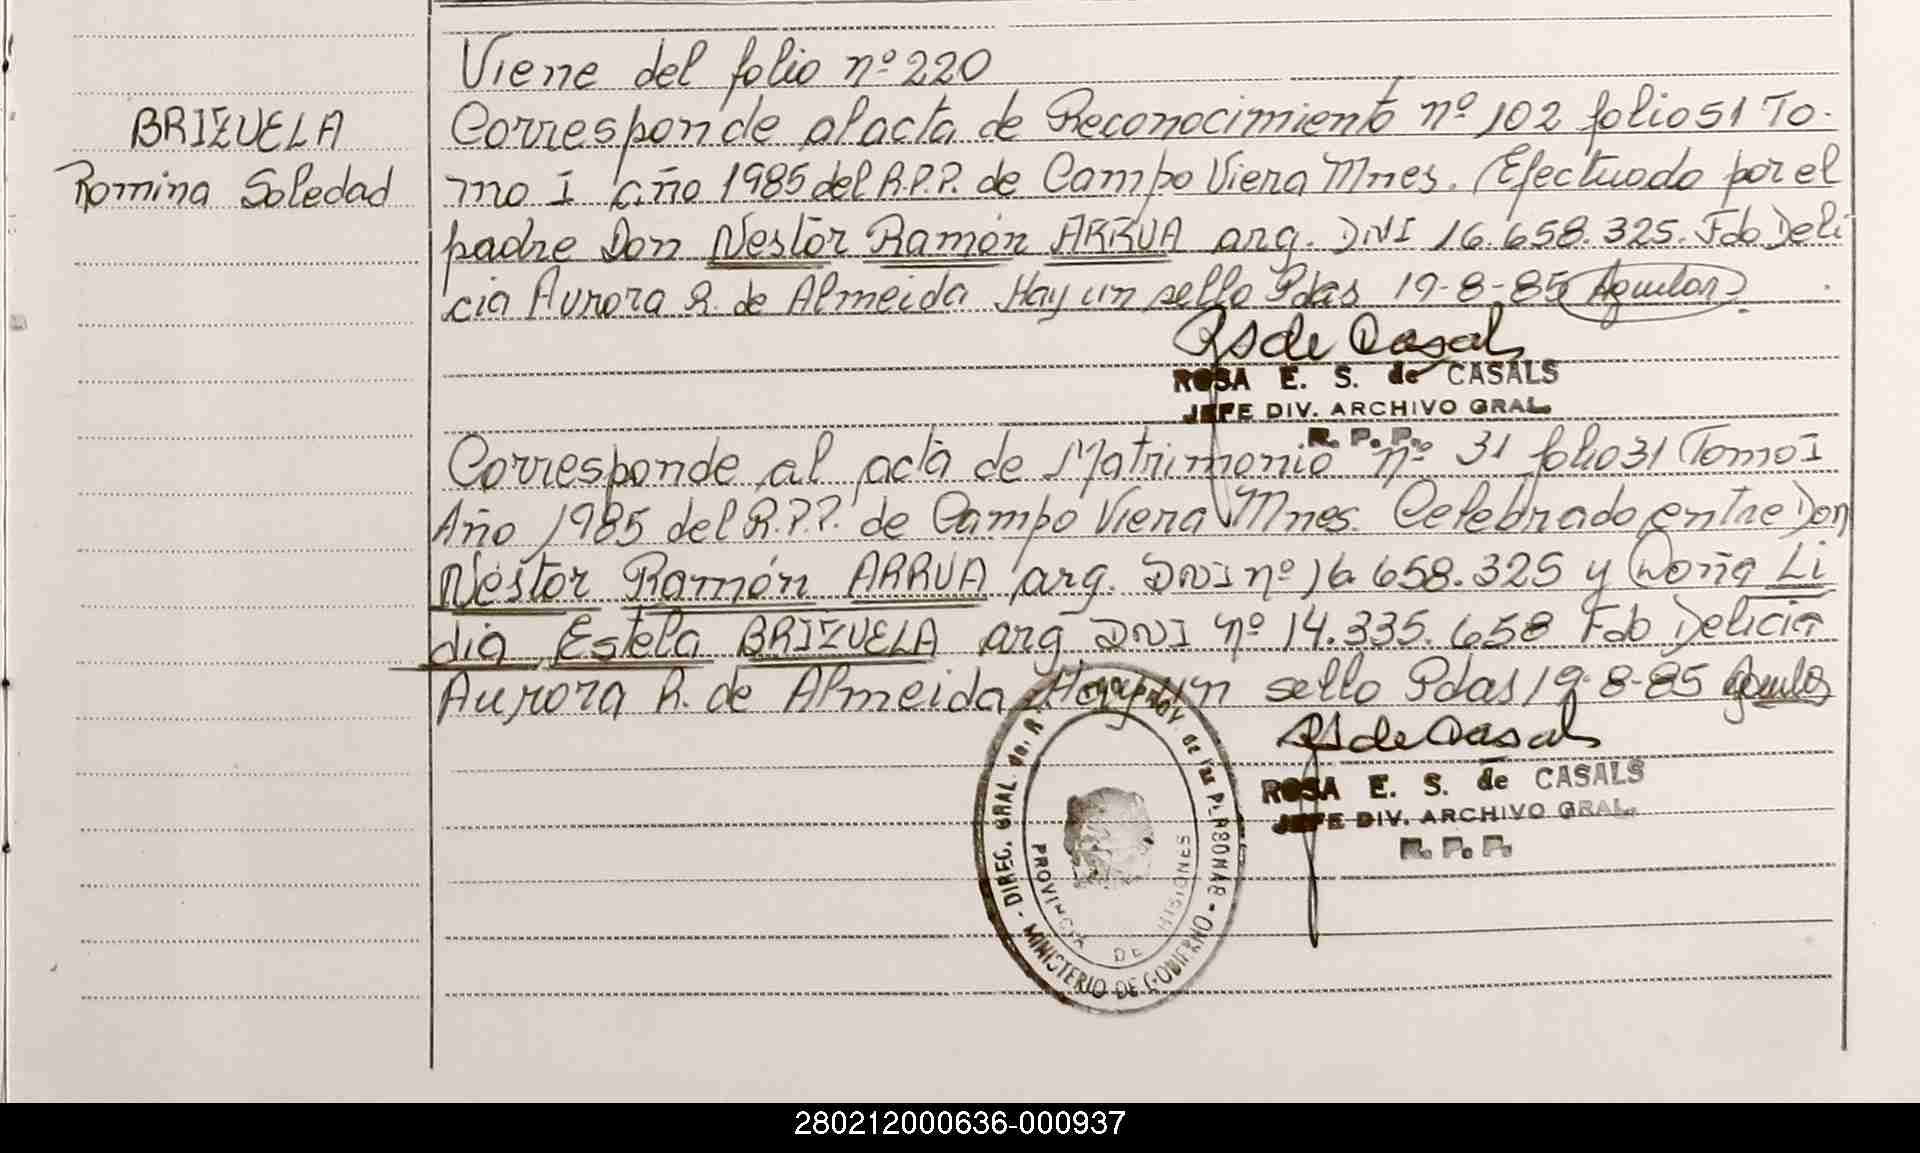 Viene del folio nº 220
BRIZUELA
Romina Soledad
Corresponde al acta de Reconocimiento nº 102 folio 51 To-
mo I año 1985 del R.P.P. de Campo Viera Mnes. Efectuado por el
padre Don Nestor Ramón ARRUA arg. DNI 16.658.325. Fdo Deli
cia Aurora R. de Almeida Hay un sello Pdas 19-8-85 Aguilar
RS de Casals
ROSA E. S. de CASALS
JEFE DIV. ARCHIVO GRAL.
R. P. P.
Corresponde al acta de Matrimonio nº 31 folio 31 Tomo I
Año 1985 del R.P.P. de Campo Viera Mnes. Celebrado entre Don
Néstor Ramón ARRUA arg. DNI nº 16.658.325 y Doña Li
dia Estela BRIZUELA arg DNI nº 14.335.658 Fdo Delicia
Aurora R. de Almeida Hay un sello Pdas 19-8-85
RS de Casals
ROSA E. S. de CASALS
JEFE DIV. ARCHIVO GRAL.
R. P. P.
DIREC. GRAL. de PERSONAS - MINISTERIO DE GOBIERNO -
PROVINCIA DE MISIONES
280212000636-000937